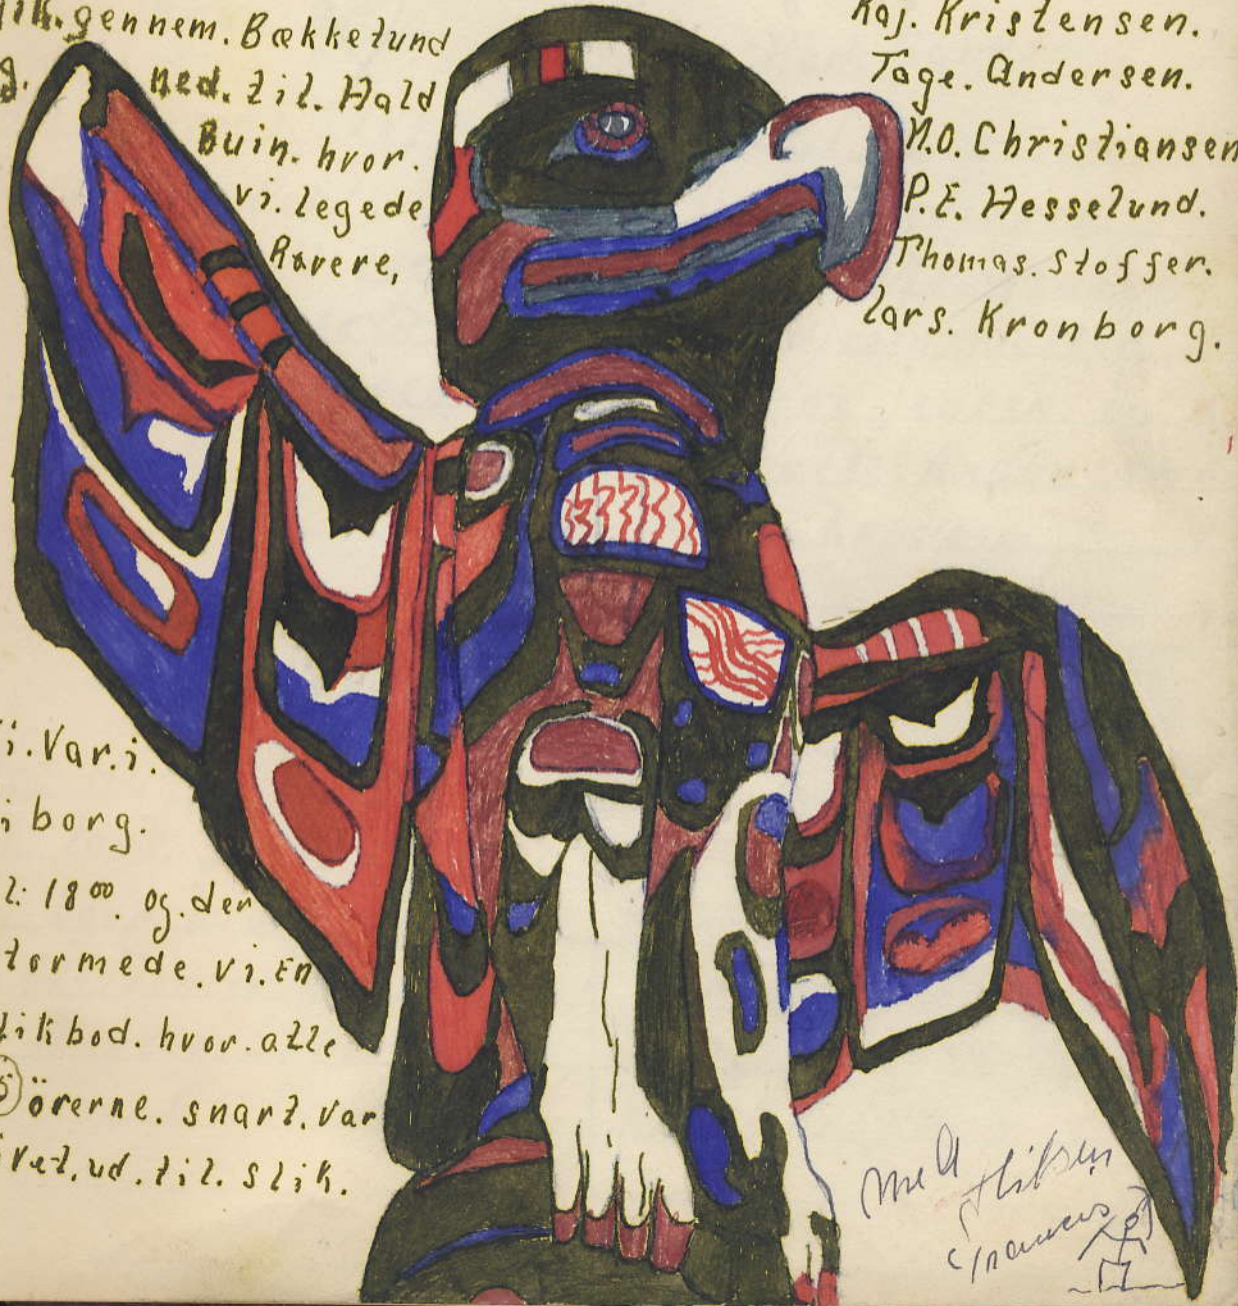 gennem. Bækkelund
ned. til. Hald
Buin. hvor.
vi. legede
Røvere,
Kaj. Kristensen.
Tage. Andersen.
N.O. Christiansen
P.E. Hesselund.
Thomas. Stoffer.
Lars. Kronborg.
i. Var. i.
iborg.
l: 18⁰⁰. og. der
tormede. vi. En
likbod. hvor. alle
5 örerne. snart. var
ivet. ud. til. Slik.
med Hilsen